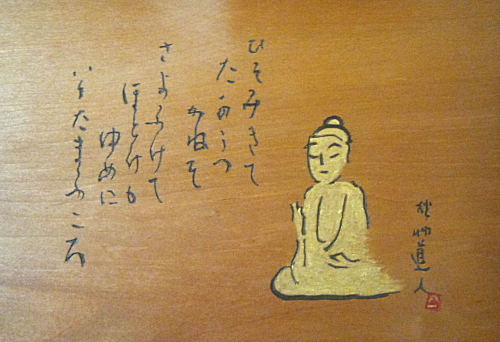 ひそみきて
たかうつ
かねそ
さよふけて
ほとけも
ゆめに
いりたまふころ
秋艸道人